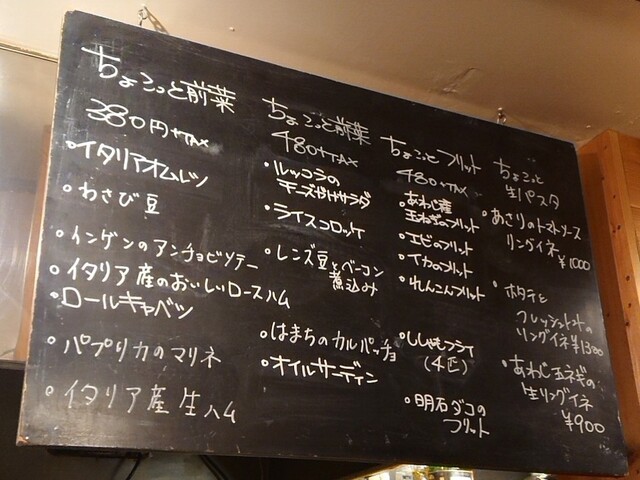 ちょこっと前菜
380円+TAX
・イタリアオムレツ
・わさび豆
・インゲンのアンチョビソテー
・イタリア産のおいしいロースハム
・ロールキャベツ
・パプリカのマリネ
・イタリア産生ハム
ちょこっと前菜
480+TAX
・ルッコラの
チーズかけサラダ
・ライスコロッケ
・レンズ豆とベーコン
煮込み
・はまちのカルパッチョ
・オイルサーディン
ちょこっとフリット
480+TAX
・あわじ産
玉ねぎのフリット
・エビのフリット
・イカのフリット
・れんこんフリット
・ししゃもフライ
(4匹)
・明石ダコの
フリット
ちょこっと
生パスタ
・あさりのトマトソース
リングイネ
¥1000
・ホタテと
フレッシュトマトの
リングイネ ¥1300
・あわじ玉ネギの
生リングイネ
¥900